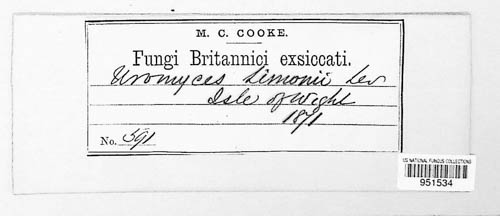 M. C. COOKE.
Fungi Britannici exsiccati.
Uromyces Limonii Lev
Isle of Wight
1871
No. 591
US NATIONAL FUNGUS COLLECTIONS
951534